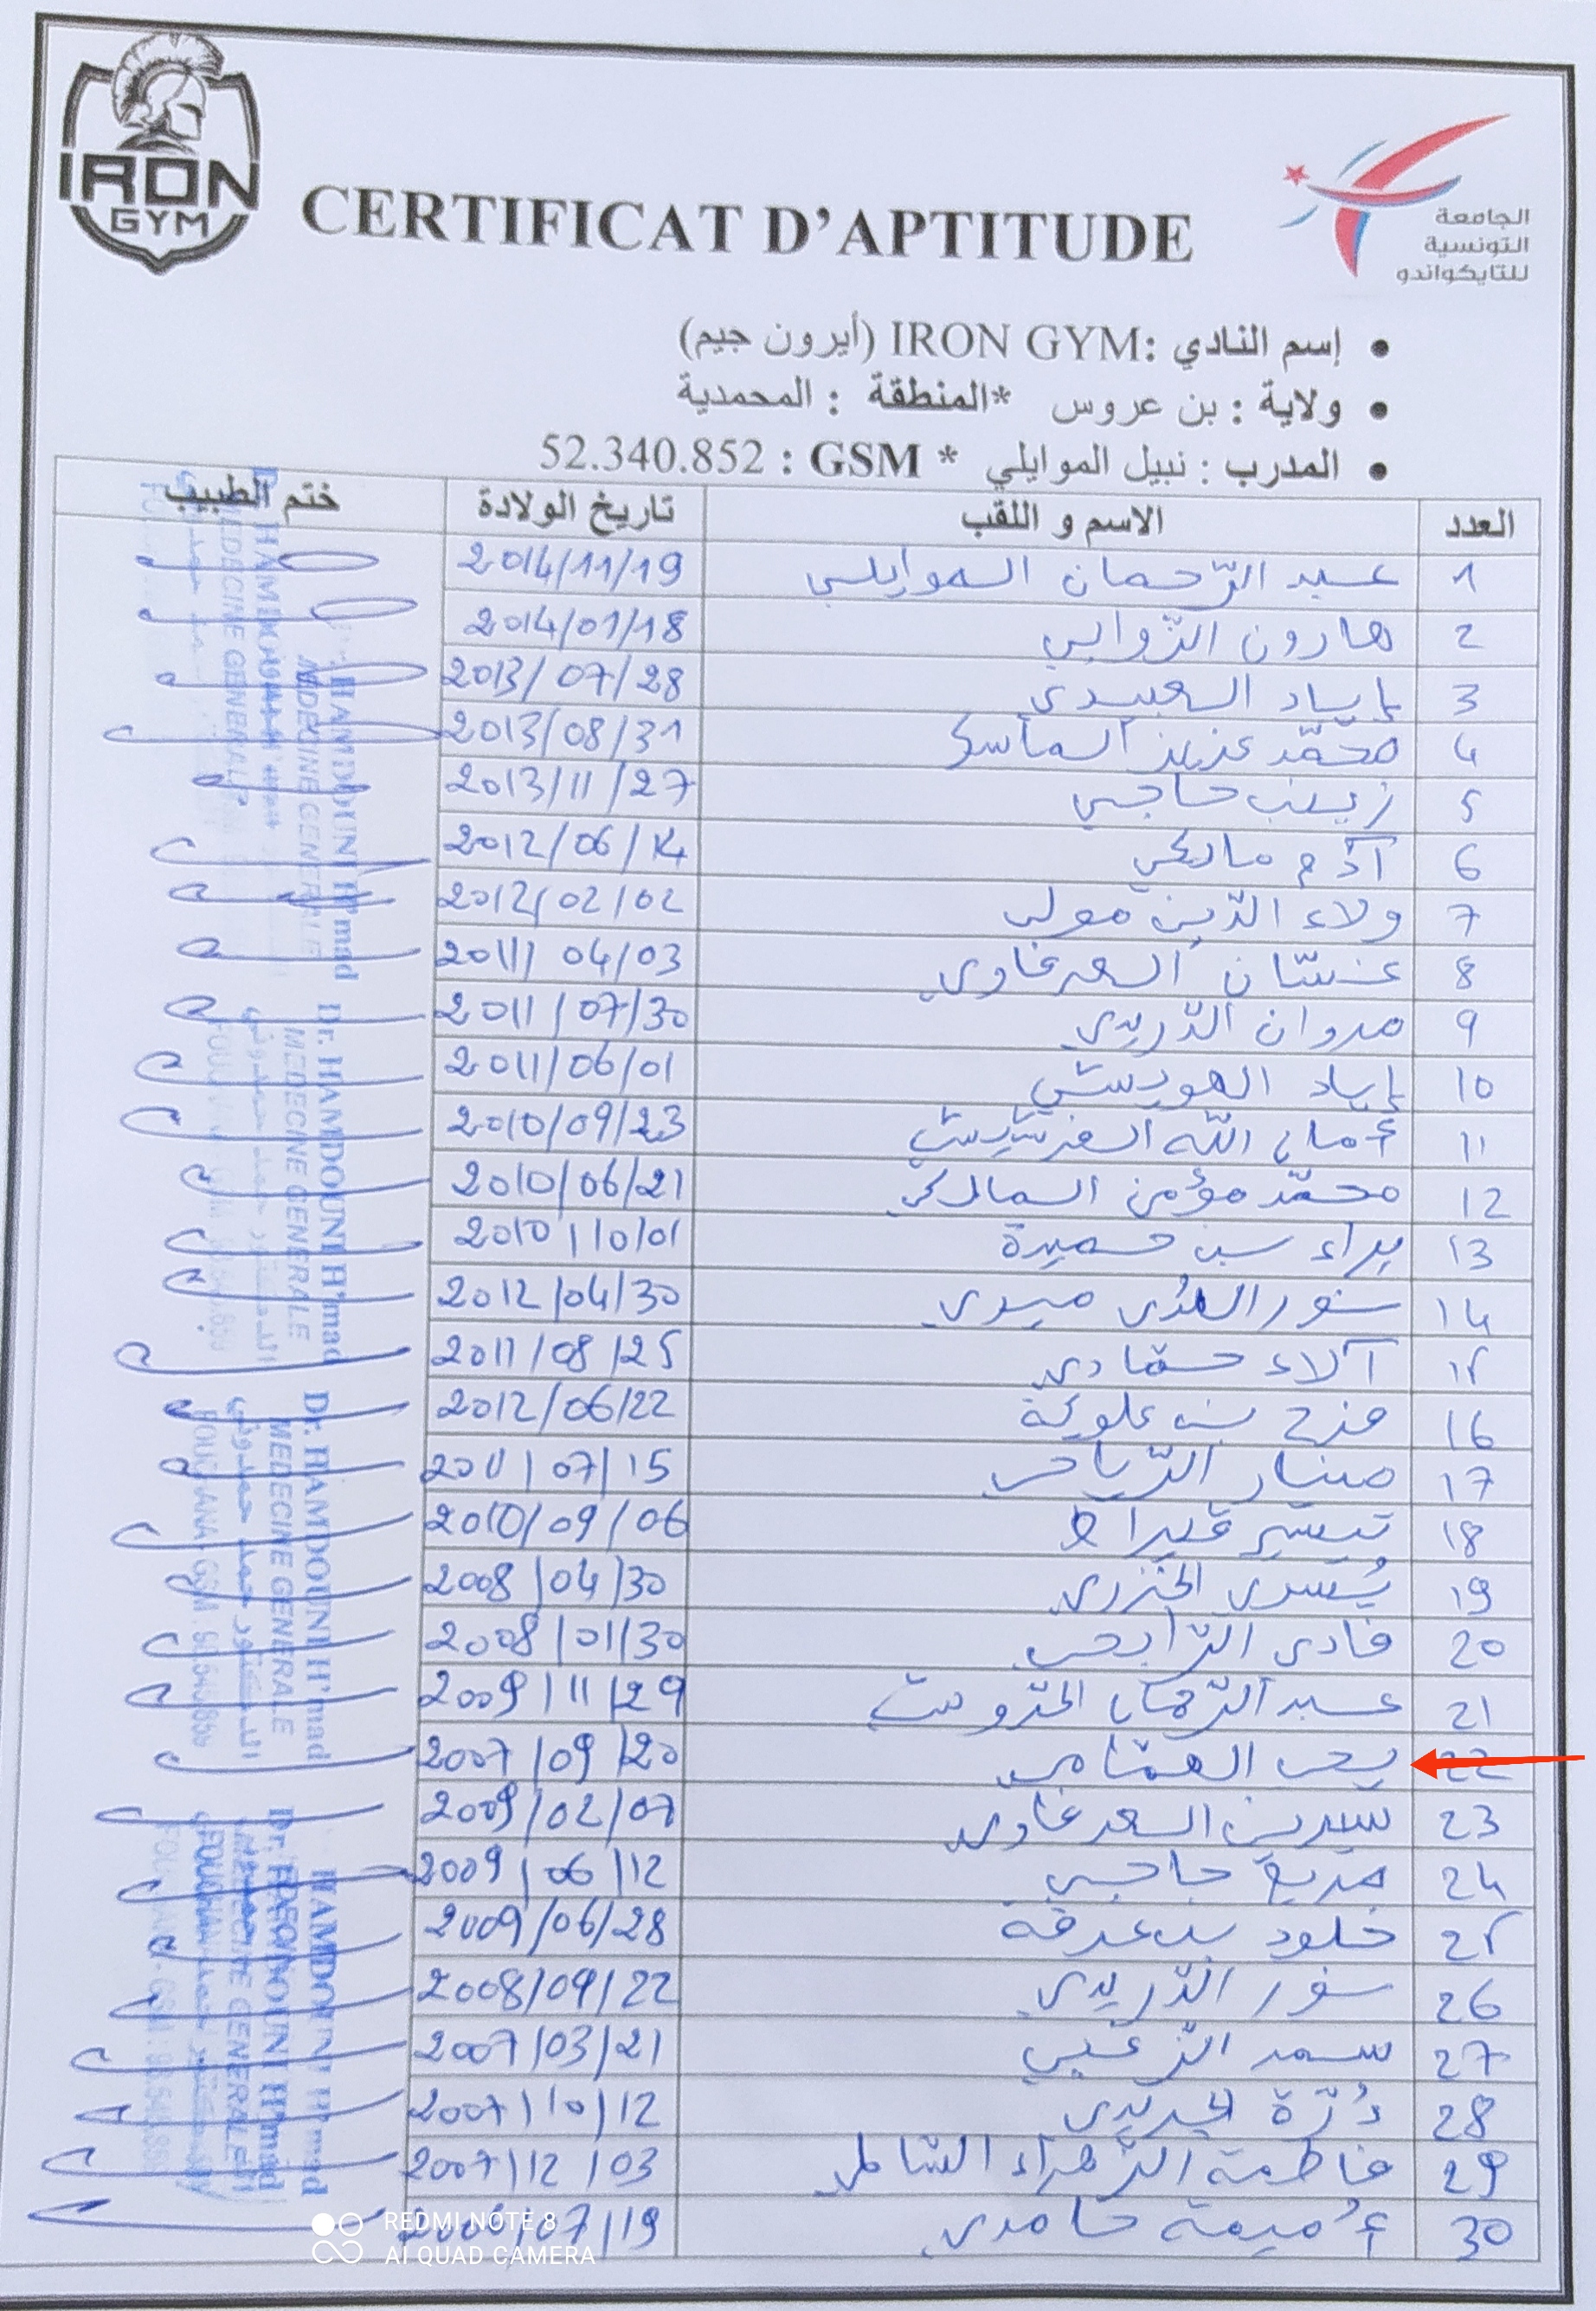 IRON
GYM
CERTIFICAT D'APTITUDE
الجامعة
التونسية
للتايكواندو
• إسم النادي :IRON GYM (أيرون جيم)
• ولاية : بن عروس *المنطقة : المحمدية
• المدرب : نبيل الموايلي * GSM : 52.340.852
العدد الاسم و اللقب تاريخ الولادة ختم الطبيب
1 عبد الرّحمان الموايلي 2014/11/19
2 هارون الزّوابي 2014/01/18
3 إياد العبيدي 2013/07/28
4 محمّد عزيز الماسي 2013/08/31
5 زينب حاجي 2013/11/27
6 آدم مالكي 2012/06/14
7 ولاء الدّين مولى 2012/02/02
8 غسّان السعرغاوي 2011/04/03
9 مروان الدّريدي 2011/07/30
10 إياد الهويشي 2011/06/01
11 أمان الله الفرشيشي 2010/09/23
12 محمّد مؤمن المالكي 2010/06/21
13 براء بن حميدة 2010/10/01
14 نور الهدى ميدي 2012/04/30
15 آلاء حمّادي 2011/08/25
16 فرح بن علوية 2012/06/22
17 منار الرّياحي 2011/07/15
18 تيسير قيراط 2010/09/06
19 يُسرى الخزري 2008/04/30
20 فادي الرّابحي 2008/01/30
21 عبد الرّحمان 2009/11/29
22 يحي العمّامي 2007/09/20
23 سيرين السعرغاوي 2009/02/07
24 مريم حاجي 2009/06/12
25 خلود بن عرفة 2009/06/28
26 نور الدّريدي 2008/09/22
27 سمر الزّغبي 2007/03/21
28 دُرّة الجريدي 2007/10/12
29 فاطمة الزّهراء الشّاملي 2007/12/03
30 أُميمة حامدي 07/19
Dr. HAMDOUNI H'mad
MEDECINE GENERALE
الدكتور حمد حمدوني
FOUCHANA - GSM
REDMI NOTE 8
AI QUAD CAMERA